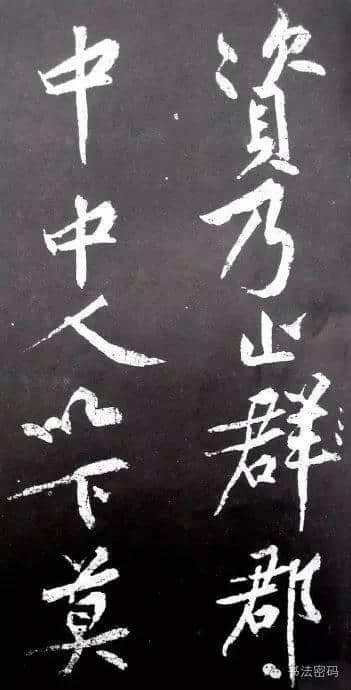 資乃止群郡
中中人以下莫
书法密码